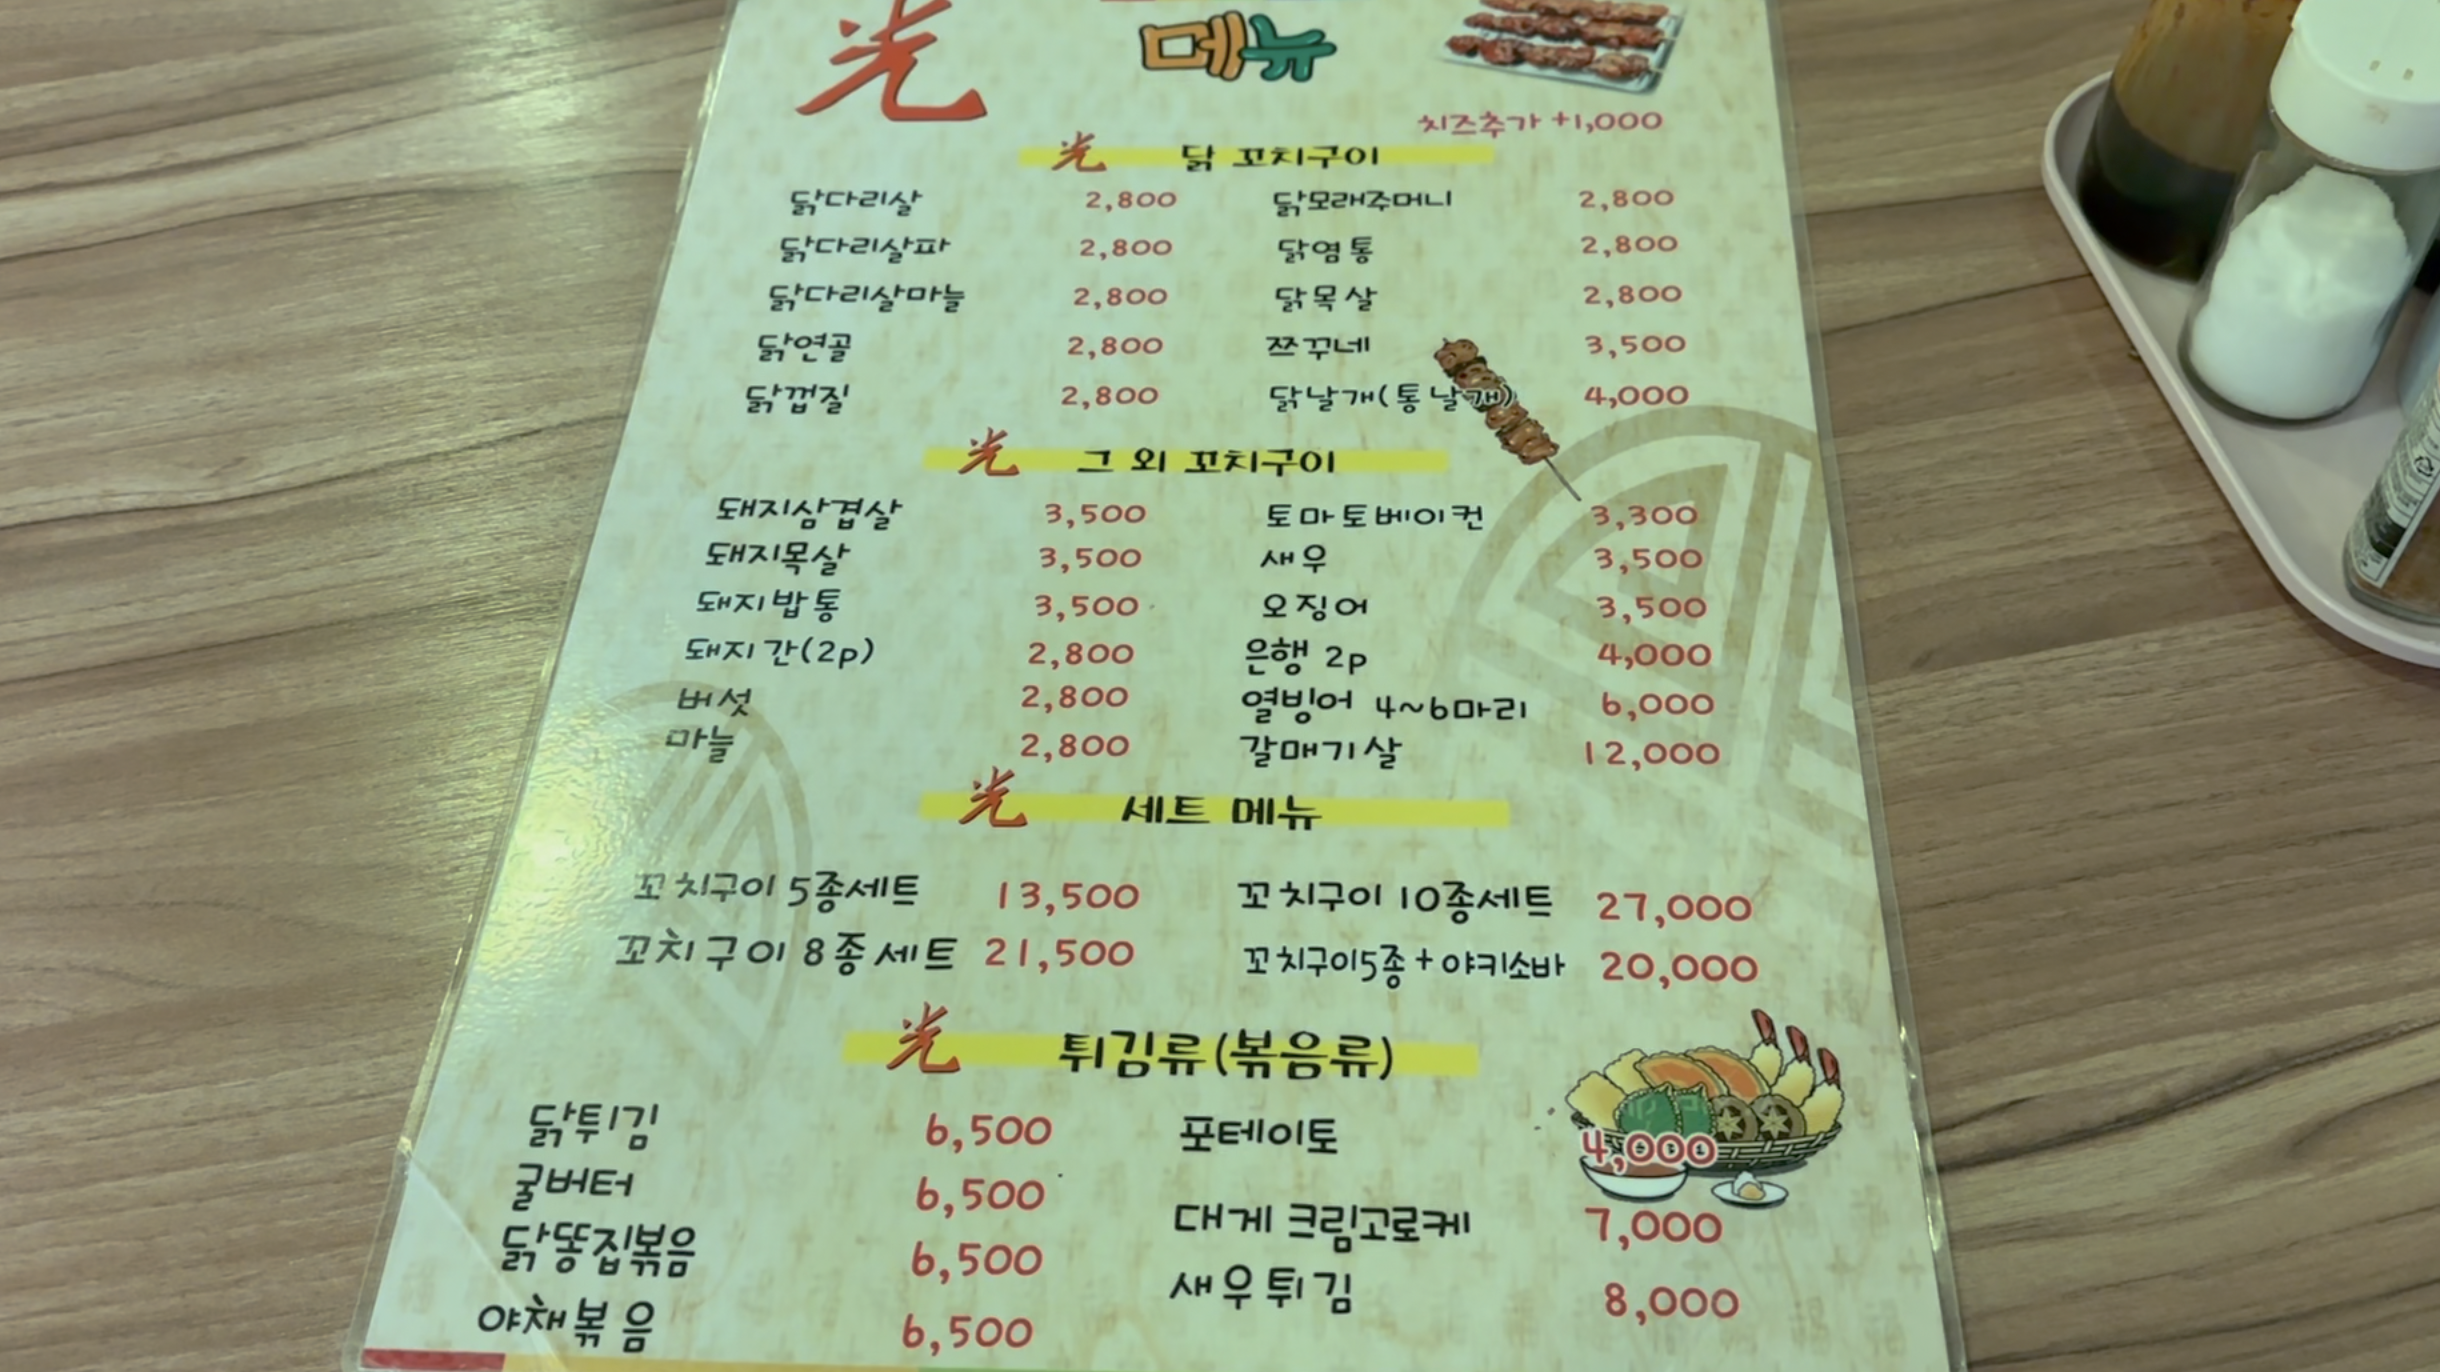 光 메뉴
치즈추가 +1,000
光 닭 꼬치구이
닭다리살 2,800 닭모래주머니 2,800
닭다리살파 2,800 닭염통 2,800
닭다리살마늘 2,800 닭목살 2,800
닭연골 2,800 쯔꾸네 3,500
닭껍질 2,800 닭날개(통날개) 4,000
光 그 외 꼬치구이
돼지삼겹살 3,500 토마토베이컨 3,300
돼지목살 3,500 새우 3,500
돼지밥통 3,500 오징어 3,500
돼지간(2p) 2,800 은행 2p 4,000
버섯 2,800 열빙어 4~6마리 6,000
마늘 2,800 갈매기살 12,000
光 세트 메뉴
꼬치구이 5종세트 13,500 꼬치구이 10종세트 27,000
꼬치구이 8종세트 21,500 꼬치구이5종+야키소바 20,000
光 튀김류(볶음류)
닭튀김 6,500 포테이토 4,000
굴버터 6,500 대게 크림고로케 7,000
닭똥집볶음 6,500 새우튀김 8,000
야채볶음 6,500